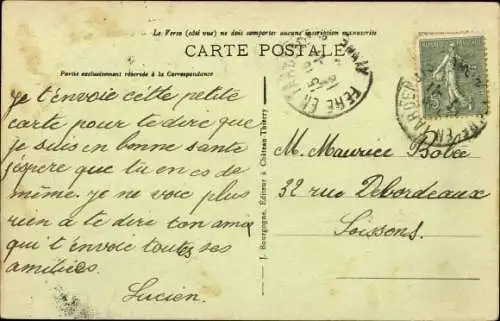 Le Verso (côté vue) ne doit comporter aucune inscription manuscrite
CARTE POSTALE
Partie exclusivement réservée à la Correspondance
je t'envoie cette petite
carte pour te dire que
je suis en bonne santé
j'espere que tu en es de
même. je ne voie plus
rien a te dire ton ami
qui t'envoie toutes ses
amitiées.
Lucien.
J. Bourgogne, Éditeur à Château Thierry
FERE EN TARDENOIS
M. Maurice Botée
32 rue Debordeaux
Soissons.